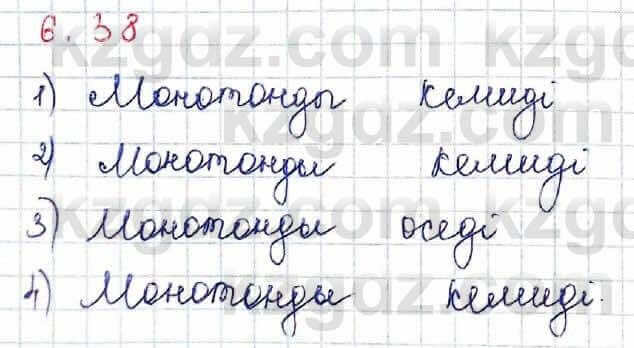 6.38
1) Монотонды кемиді
2) Монотонды кемиді
3) Монотонды өседі
4) Монотонды кемиді.